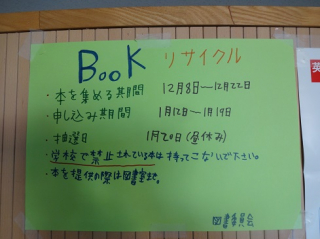 BooK リサイクル
・本を集める期間 12月8日―12月22日
・申し込み期間 1月12日―1月19日
・抽選日 1月20日(昼休み)
・学校で禁止されている本は持ってこないで下さい。
・本を提供の際は図書室まで。
図書委員会
英